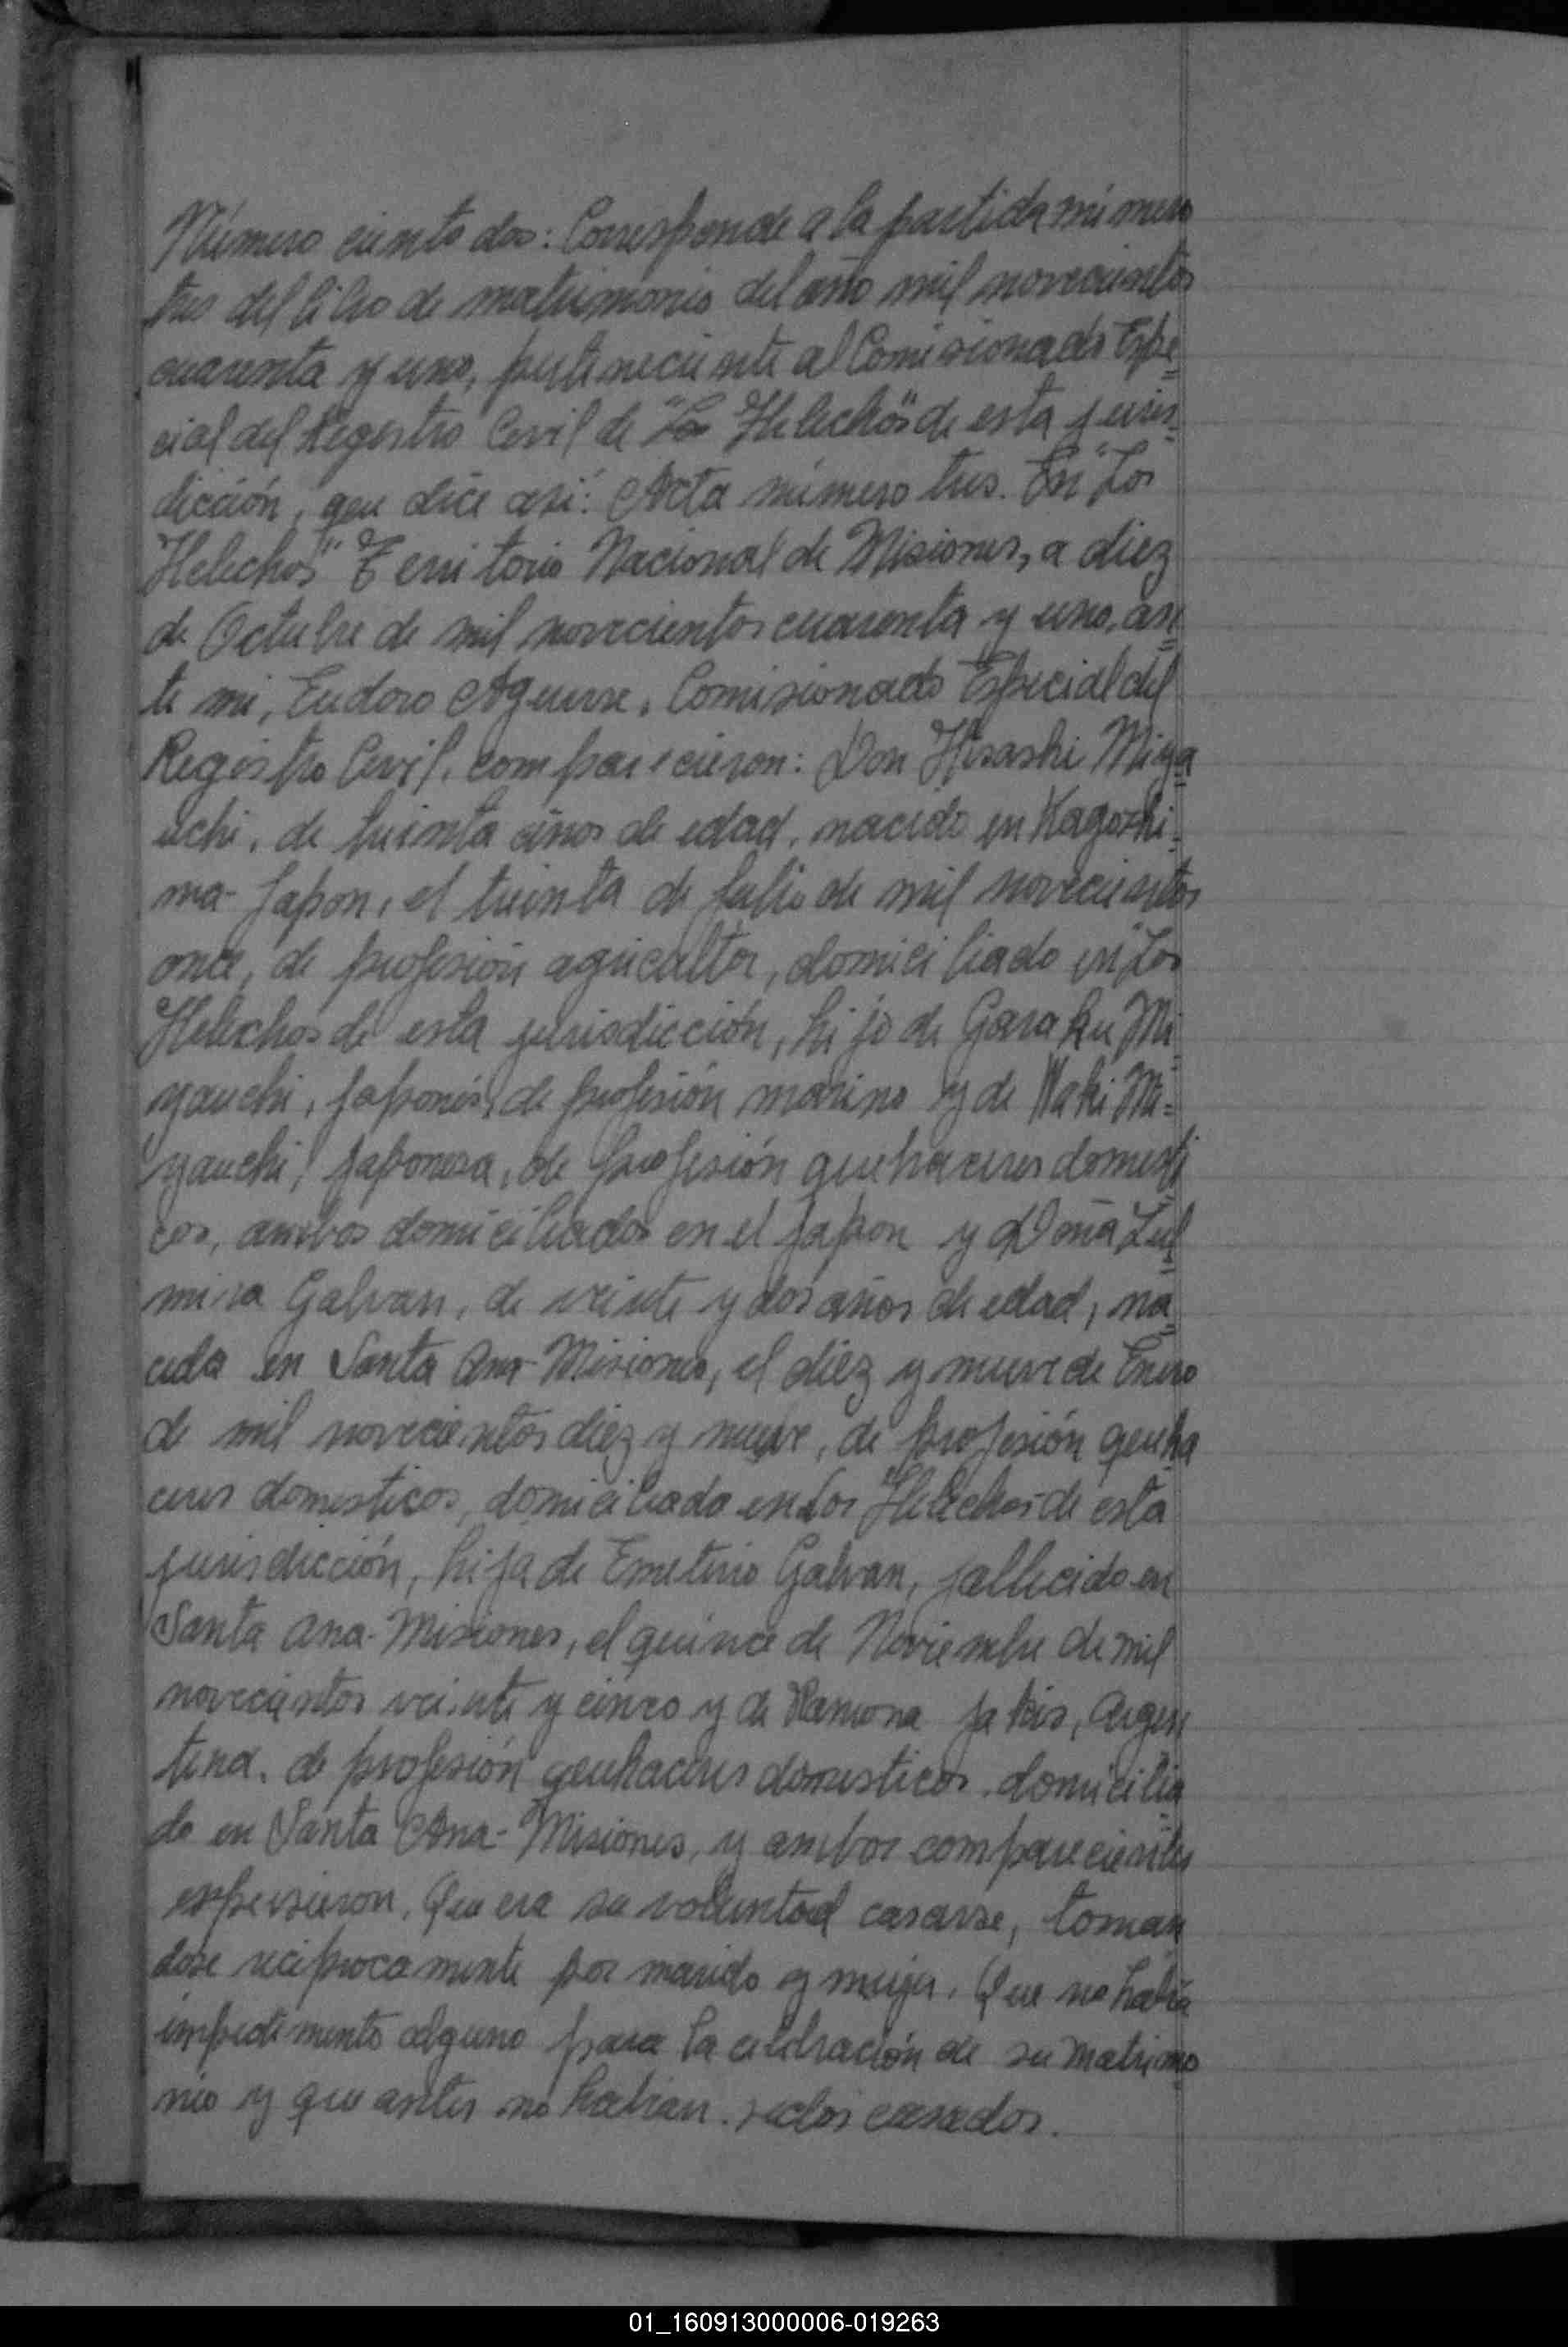 Número ciento dos: Corresponde a la partida número
tres del libro de matrimonio del año mil novecientos
cuarenta y uno, perteneciente al Comisionado Espe=
cial del Registro Civil de "Los Helechos" de esta juris=
dicción, que dice asi: Acta número tres. En "Los
Helechos" Territorio Nacional de Misiones, a diez
de Octubre de mil novecientos cuarenta y uno, an=
te mi, Eudoro Aguirre, Comisionado Especial del
Registro Civil, comparecieron: Don Hisashi Miya=
uchi, de treinta años de edad, nacido en Kagoshi=
ma- Japon, el treinta de Julio de mil novecientos
once, de profesión agricultor, domiciliado en "Los
Helechos de esta jurisdicción, hijo de Garaku Mi=
yauchi, japonés, de profesión marino y de Waki Mi=
yauchi, japonesa, de profesión quehaceres domesti=
cos, ambos domiciliados en el Japon y Doña Lul=
mira Galvan, de veinte y dos años de edad, na=
cida en Santa Ana- Misiones, el diez y nueve de Enero
de mil novecientos diez y nueve, de profesión queha
ceres domesticos, domiciliada en Los Helechos- de esta
jurisdicción, hija de Emeterio Galvan, fallecido en
Santa Ana- Misiones, el quince de Noviembre de mil
novecientos veinte y cinco y de Ramona, Argen
tina, de profesión quehaceres domesticos, domicilia=
da en Santa Ana- Misiones, y ambos comparecientes
expusieron, Que era su voluntad casarse, toman
dose reciprocamente por marido y mujer. Que no habia
impedimento alguno para la celbración de su matrimo
nio y que antes no habian casados.